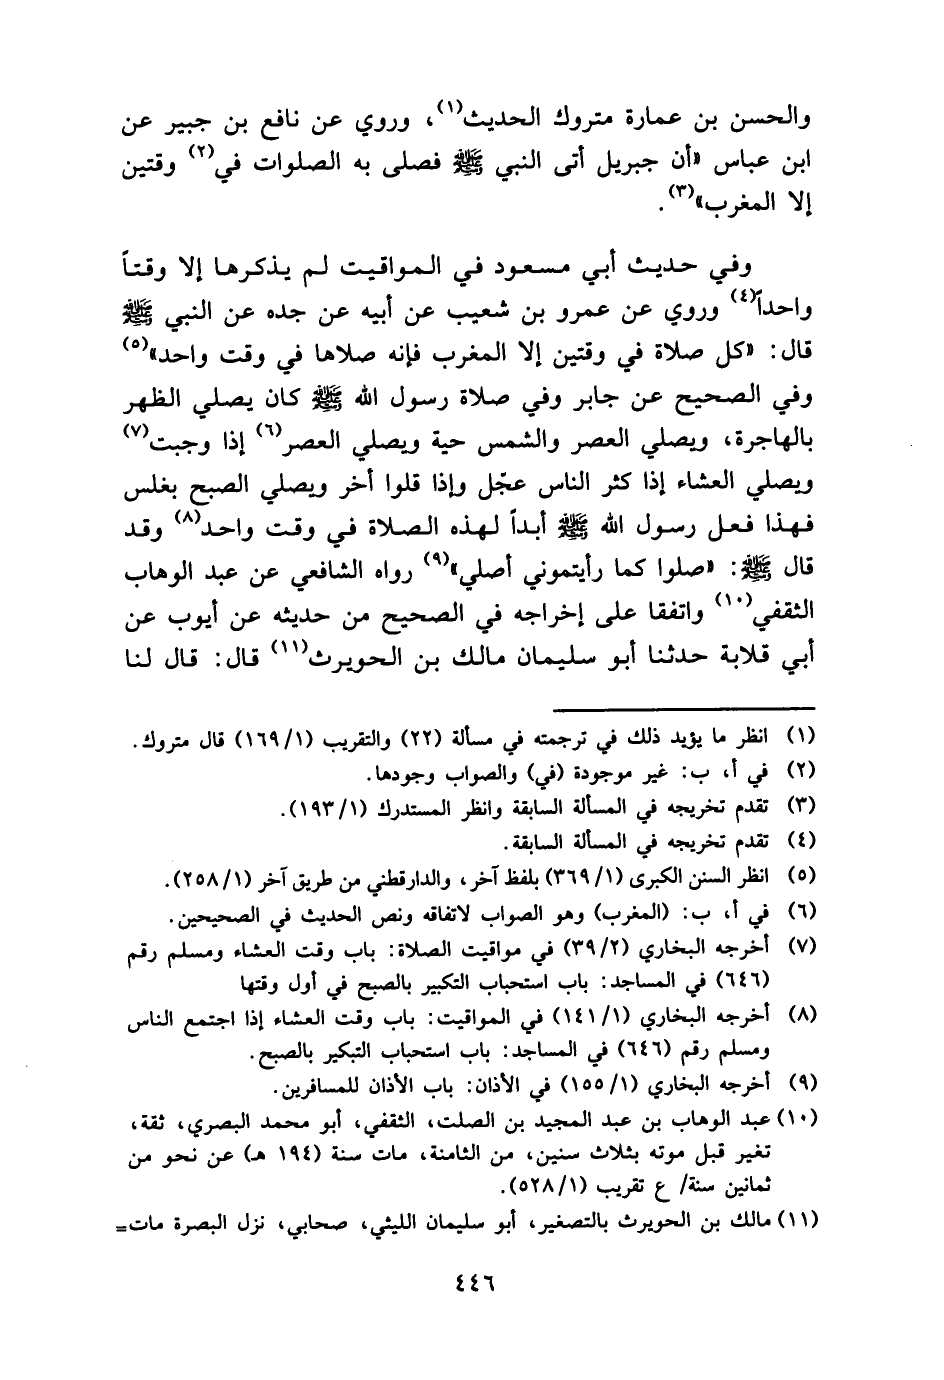 والحسن بن عمارة متروك الحديث(١)، وروي عن نافع بن جبير عن
ابن عباس «أن جبريل أتى النبي ﷺ فصلى به الصلوات في(٢) وقتين
إلا المغرب»(٣).
وفي حديث أبي مسعود في المواقيت لم يذكرها إلا وقتاً
واحداً(٤) وروي عن عمرو بن شعيب عن أبيه عن جده عن النبي ﷺ
قال: «كل صلاة في وقتين إلا المغرب فإنه صلاها في وقت واحد»(٥)
وفي الصحيح عن جابر وفي صلاة رسول الله ﷺ كان يصلي الظهر
بالهاجرة، ويصلي العصر والشمس حية ويصلي العصر(٦) إذا وجبت(٧)
ويصلي العشاء إذا كثر الناس عجّل وإذا قلوا أخر ويصلي الصبح بغلس
فهذا فعل رسول الله ﷺ أبداً لهذه الصلاة في وقت واحد(٨) وقد
قال ﷺ: «صلوا كما رأيتموني أصلي»(٩) رواه الشافعي عن عبد الوهاب
الثقفي(١٠) واتفقا على إخراجه في الصحيح من حديثه عن أيوب عن
أبي قلابة حدثنا أبو سليمان مالك بن الحويرث(١١) قال: قال لنا
(١) انظر ما يؤيد ذلك في ترجمته في مسألة (٢٢) والتقريب (١/١٦٩) قال متروك.
(٢) في أ، ب: غير موجودة (في) والصواب وجودها.
(٣) تقدم تخريجه في المسألة السابقة وانظر المستدرك (١/١٩٣).
(٤) تقدم تخريجه في المسألة السابقة.
(٥) انظر السنن الكبرى (١/٣٦٩) بلفظ آخر، والدارقطني من طريق آخر (١/٢٥٨).
(٦) في أ، ب: (المغرب) وهو الصواب لاتفاقه ونص الحديث في الصحيحين.
(٧) أخرجه البخاري (٢/٣٩) في مواقيت الصلاة: باب وقت العشاء ومسلم رقم
(٦٤٦) في المساجد: باب استحباب التكبير بالصبح في أول وقتها
(٨) أخرجه البخاري (١/١٤١) في المواقيت: باب وقت العشاء إذا اجتمع الناس
ومسلم رقم (٦٤٦) في المساجد: باب استحباب التبكير بالصبح.
(٩) أخرجه البخاري (١/١٥٥) في الأذان: باب الأذان للمسافرين.
(١٠) عبد الوهاب بن عبد المجيد بن الصلت، الثقفي، أبو محمد البصري، ثقة،
تغير قبل موته بثلاث سنين، من الثامنة، مات سنة (١٩٤ هـ) عن نحو من
ثمانين سنة/ ع تقريب (١/٥٢٨).
(١١) مالك بن الحويرث بالتصغير، أبو سليمان الليثي، صحابي، نزل البصرة مات=
٤٤٦